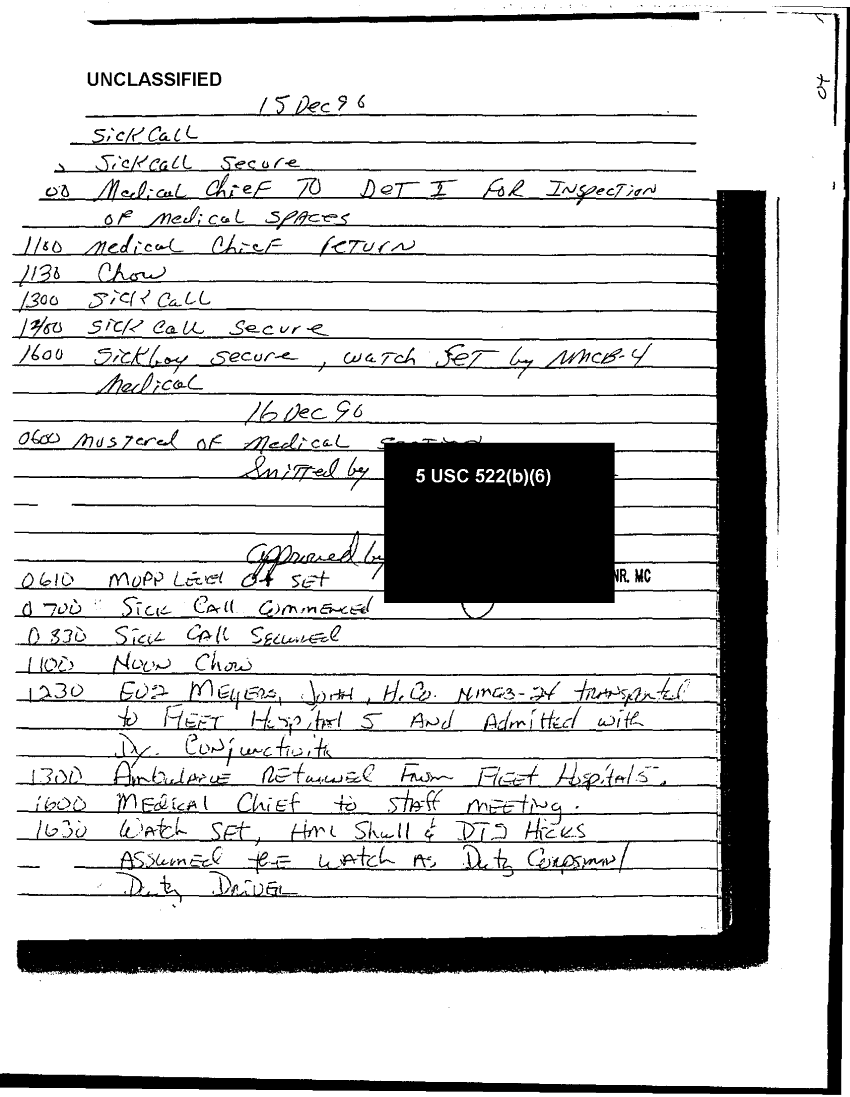 UNCLASSIFIED
15 Dec 96
Sick Call
Sickcall Secure
00 Medical Chief TO DET I FOR Inspection
OF Medical SPACES
1100 Medical Chief return
1130 Chow
1300 Sick Call
Sick Call Secure
1600 Sickbay Secure, watch SET by NMCB-4
Medical
16 Dec 90
0600 Mustered of Medical
by
5 USC 522(b)(6)
Approved by
0610 MOPP Level 04 SET
NR, MC
0700 Sick Call Commenced
0830 Sick Call Secured
1100 Noon Chow
1230 EO2 Meyers, John, H.Co. NMCB-24 transported
to Fleet Hospital 5 And Admitted with
Dx. Conjunctivitis
1300 Ambulance Returned From Fleet Hospital 5.
1600 Medical Chief to staff meeting.
1630 Watch SET, HM1 Shull & DT2 Hicks
Assumed the watch As Duty Corpsman/
Duty Driver